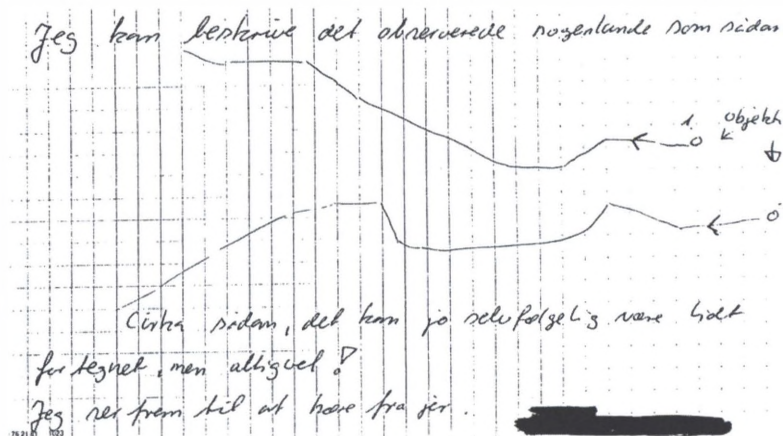 Jeg kan beskrive det observerede nogenlunde som sådan
1. objekt
Cirka sådan, det kan jo selvfølgelig være lidt
fortegnet, men alligevel!
Jeg ser frem til at høre fra jer.